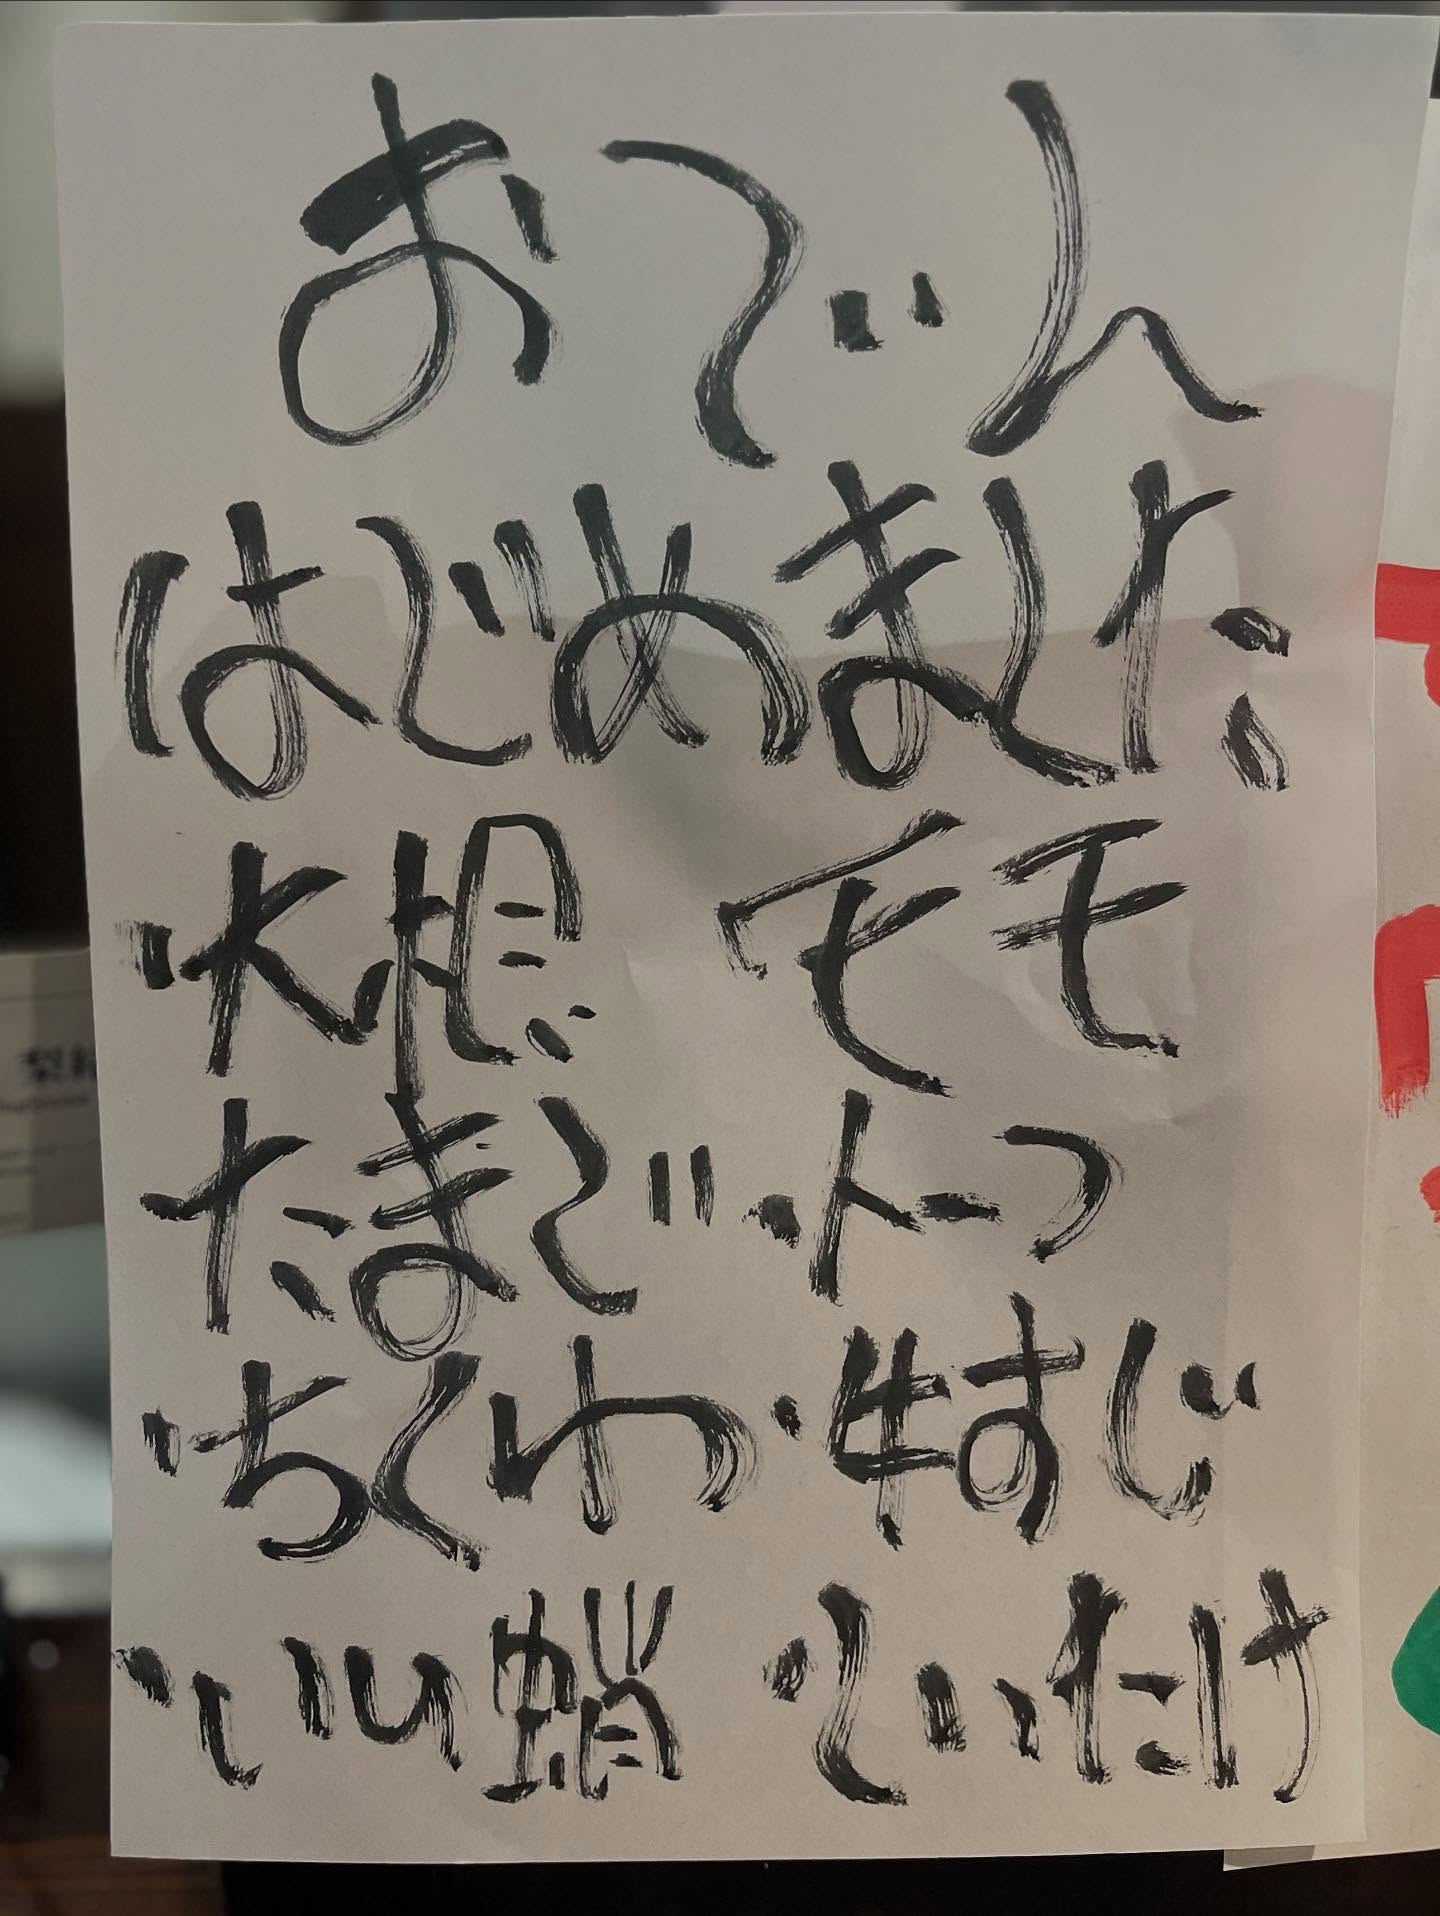 おでん
はじめました
・大根
・たまご ・トーフ
・ちくわ ・牛すじ
・いい蛸 ・しいたけ